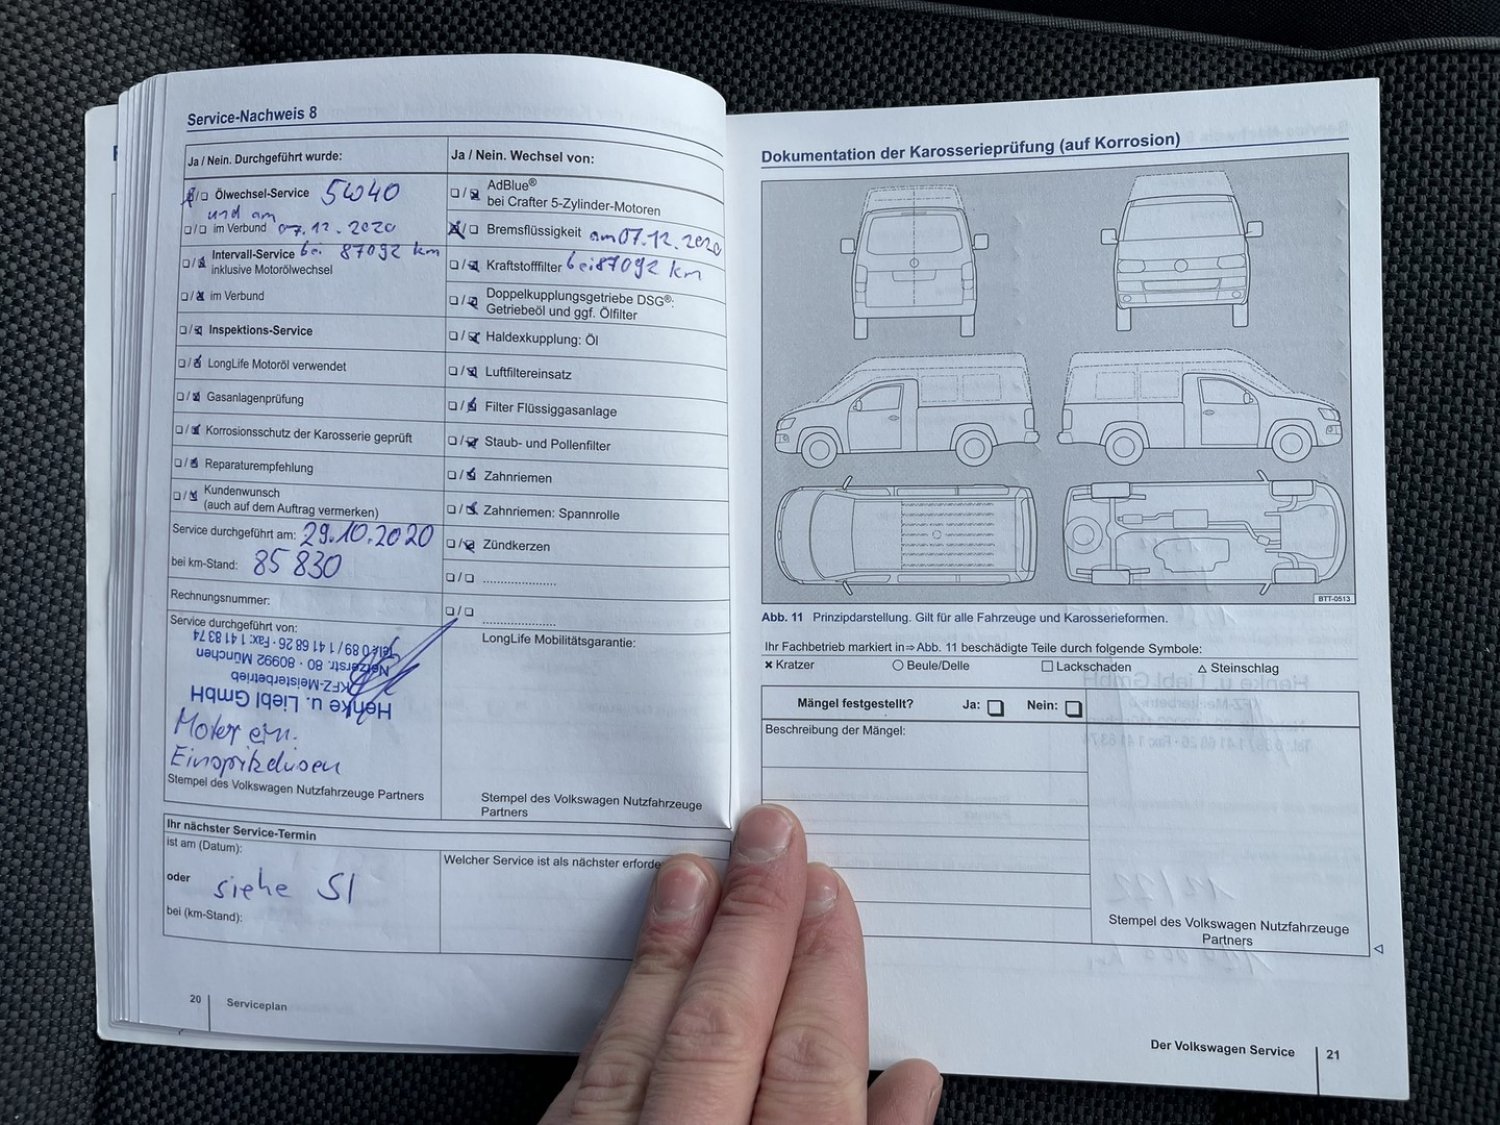 Service-Nachweis 8
Ja / Nein. Durchgeführt wurde:
Ölwechsel-Service 5W40
und am
im Verbund 07.12.2020
Intervall-Service bei 87092 km
inklusive Motorölwechsel
im Verbund
Inspektions-Service
LongLife Motoröl verwendet
Gasanlagenprüfung
Korrosionsschutz der Karosserie geprüft
Reparaturempfehlung
Kundenwunsch
(auch auf dem Auftrag vermerken)
Service durchgeführt am: 29.10.2020
bei km-Stand: 85 830
Rechnungsnummer:
Service durchgeführt von:
Henke u. Liebl GmbH
KFZ-Meisterbetrieb
Netzerstr. 80 · 80992 München
Tel.: 0 89 / 1 41 68 26 · Fax: 1 41 83 74
Motor ein.
Einspritzdüsen
Stempel des Volkswagen Nutzfahrzeuge Partners
Ja / Nein. Wechsel von:
AdBlue®
bei Crafter 5-Zylinder-Motoren
Bremsflüssigkeit am 07.12.2020
Kraftstofffilter bei 87092 km
Doppelkupplungsgetriebe DSG®:
Getriebeöl und ggf. Ölfilter
Haldexkupplung: Öl
Luftfiltereinsatz
Filter Flüssiggasanlage
Staub- und Pollenfilter
Zahnriemen
Zahnriemen: Spannrolle
Zündkerzen
LongLife Mobilitätsgarantie:
Stempel des Volkswagen Nutzfahrzeuge
Partners
Ihr nächster Service-Termin
ist am (Datum):
oder siehe SI
bei (km-Stand):
Welcher Service ist als nächster erforde
20 Serviceplan
Dokumentation der Karosserieprüfung (auf Korrosion)
BTT-0513
Abb. 11 Prinzipdarstellung. Gilt für alle Fahrzeuge und Karosserieformen.
Ihr Fachbetrieb markiert in ⇒ Abb. 11 beschädigte Teile durch folgende Symbole:
Kratzer Beule/Delle Lackschaden Steinschlag
Mängel festgestellt? Ja: Nein:
Beschreibung der Mängel:
Stempel des Volkswagen Nutzfahrzeuge
Partners
Der Volkswagen Service 21